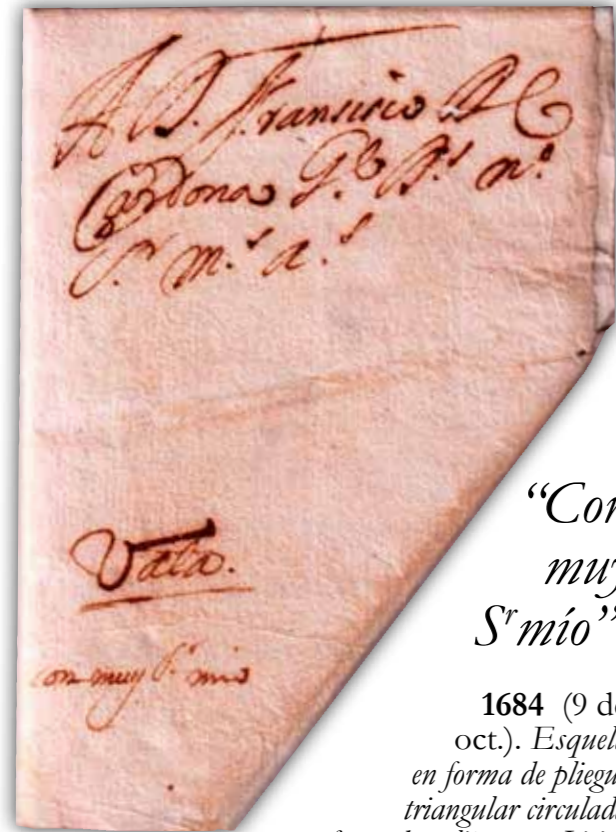 A D. Fransisco
Cardona G.e D.s n.o
S.r m.s a.s
Vala.
con muy S.r mio
“Con
muy
Sr mío”
1684 (9 de
oct.). Esquela
en forma de pliegue
triangular circulada